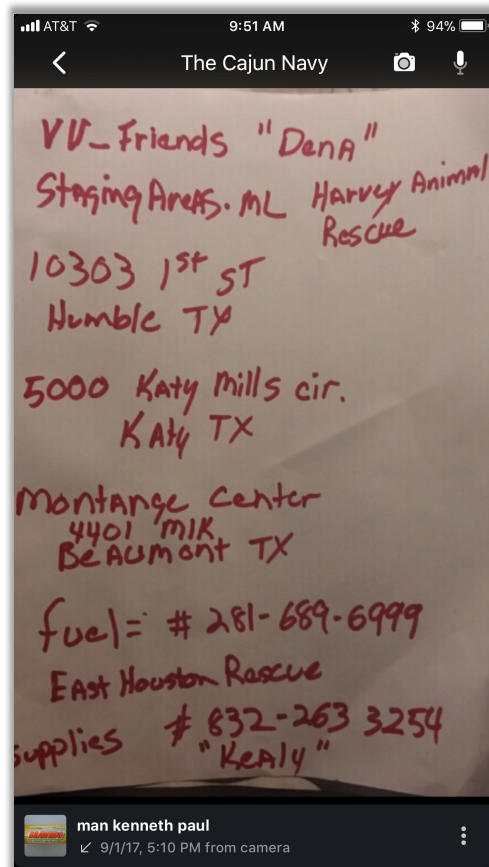 AT&T 9:51 AM 94%
The Cajun Navy
VV_Friends "Dena"
Staging Areas. ML Harvey Animal
Rescue
10303 1st ST
Humble TX
5000 Katy Mills cir.
Katy TX
Montange Center
4401 MLK
Beaumont TX
fuel= # 281-689-6999
East Houston Rescue
supplies # 832-263 3254
"Kealy"
man kenneth paul
9/1/17, 5:10 PM from camera